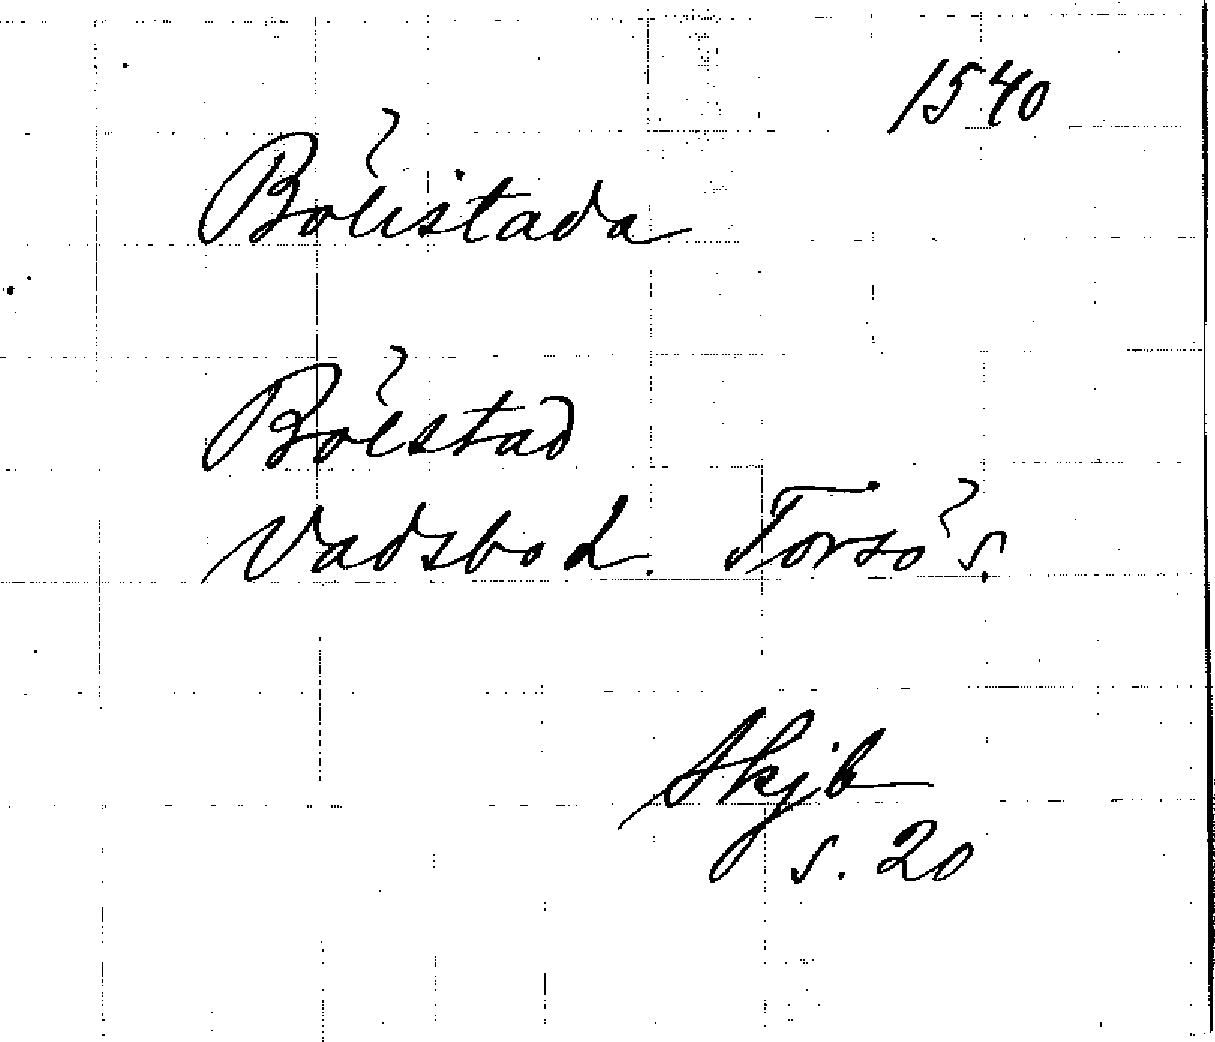 1540
Böeistada
Böestad
Vadsbo h. Torsö s.
Skjb
s. 20